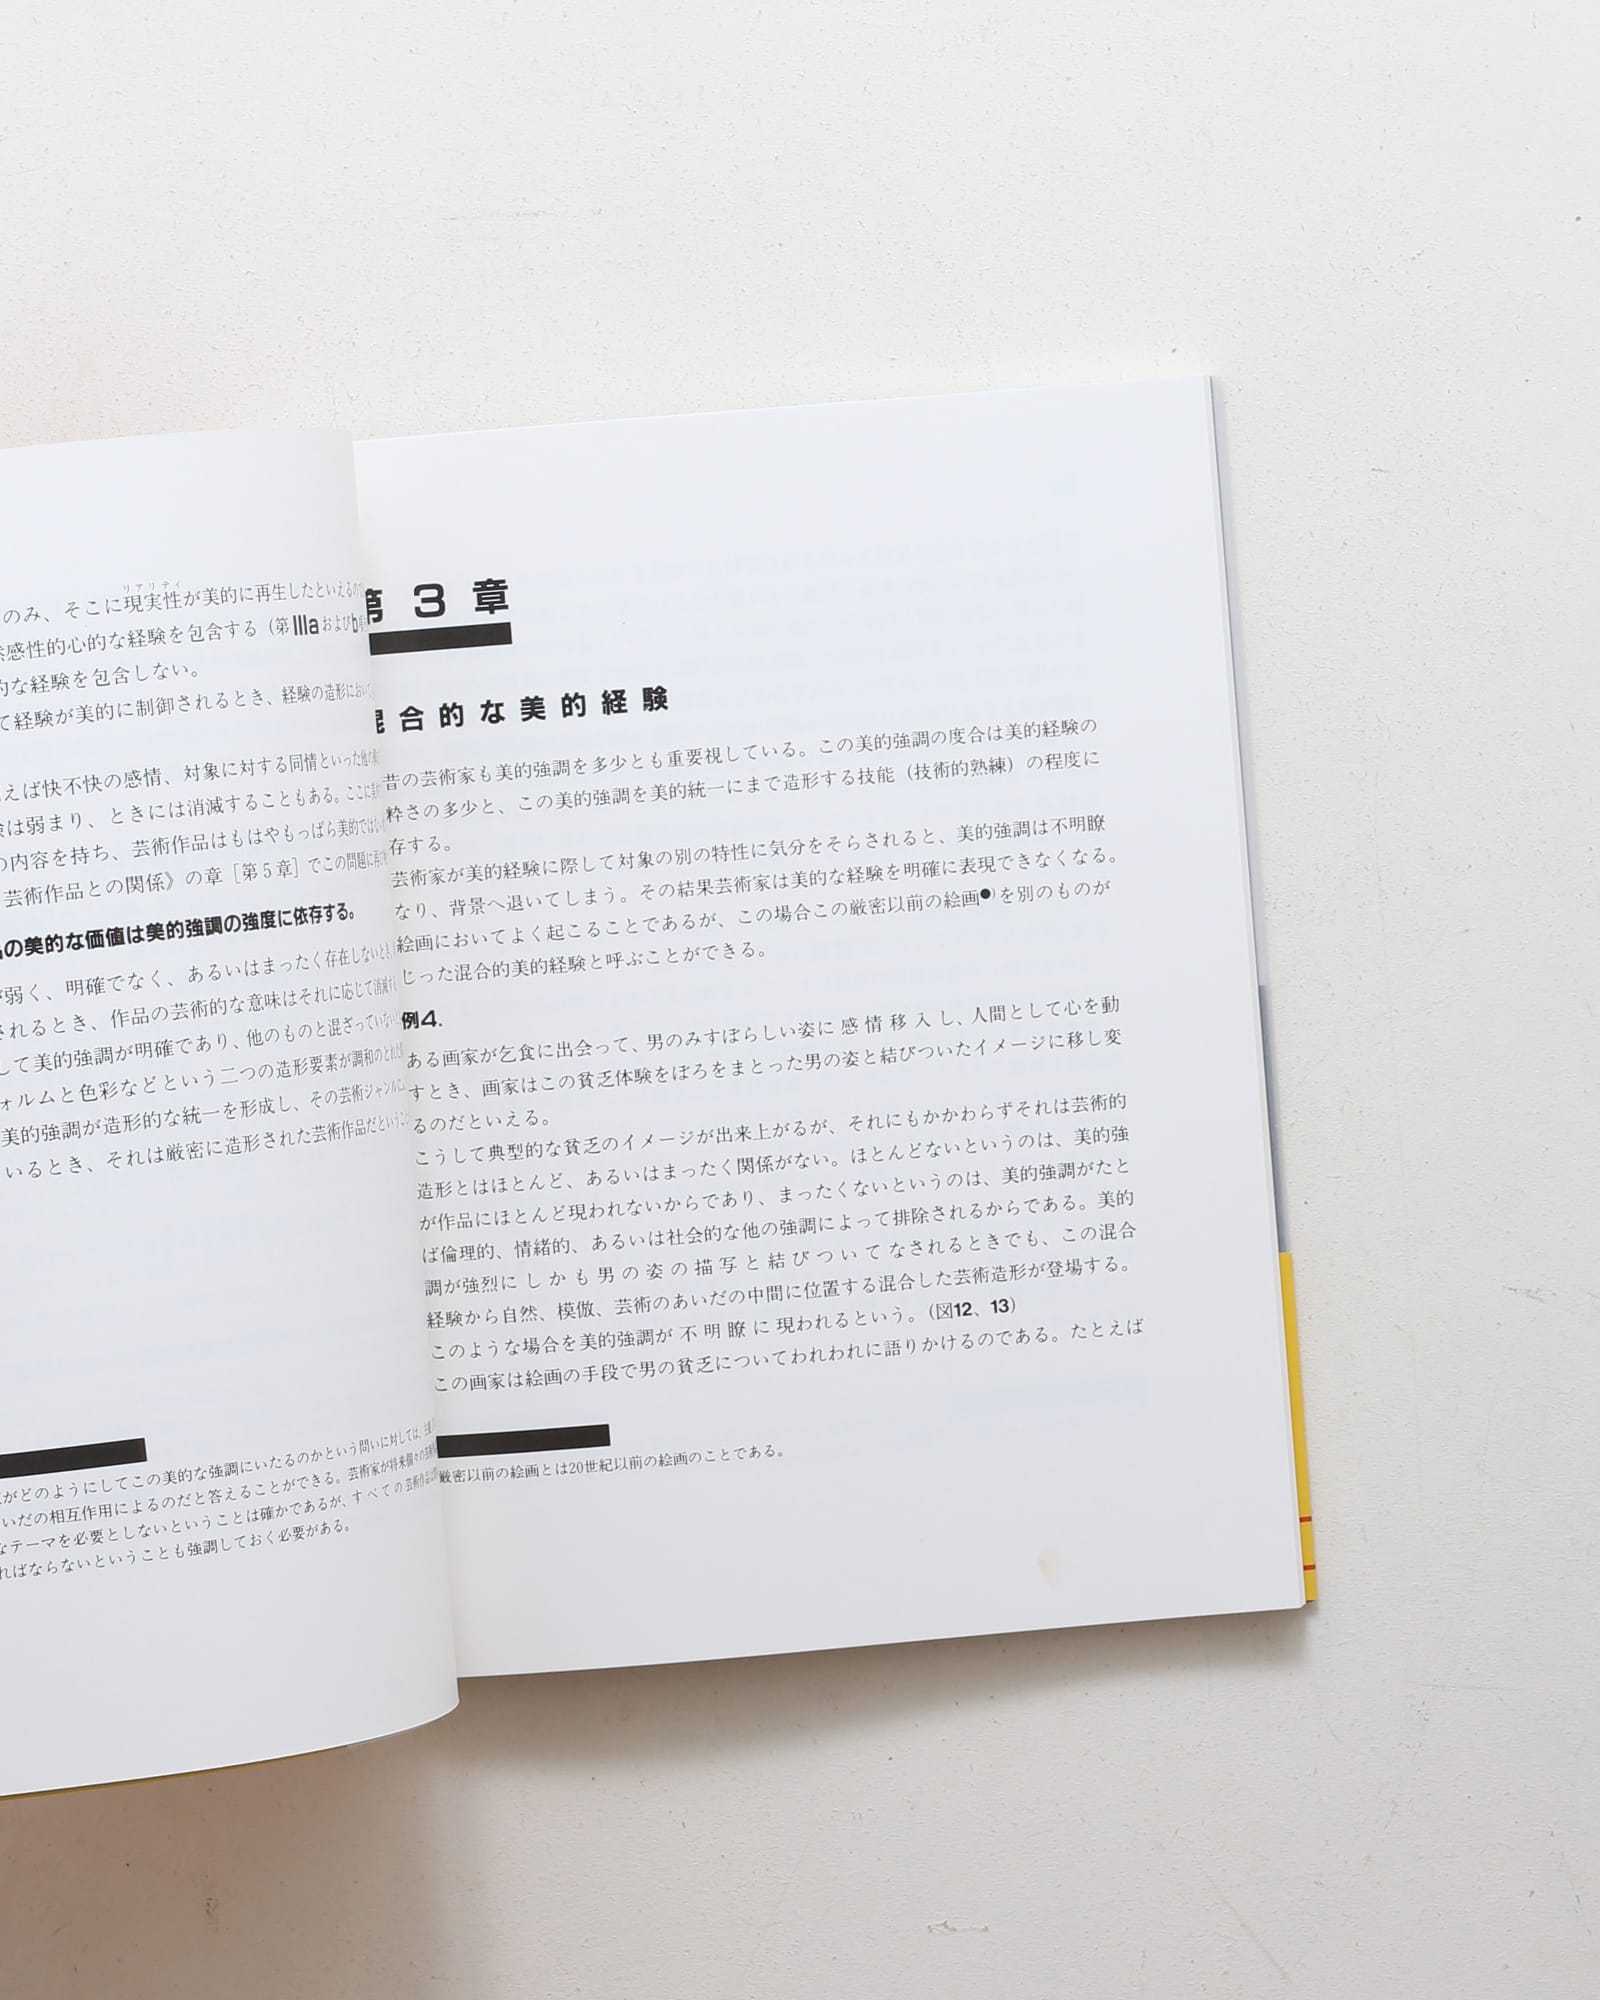 リアリティ
のみ、そこに現実性が美的に再生したといえるの
感性的心的な経験を包含する（第IIIaおよびb
的な経験を包含しない。
て経験が美的に制御されるとき、経験の造形におい
えば快不快の感情、対象に対する同情といった他の
は弱まり、ときには消滅することもある。ここに
の内容を持ち、芸術作品はもはやもっぱら美的では
芸術作品との関係》の章［第5章］でこの問題に
の美的な価値は美的強調の強度に依存する。
が弱く、明確でなく、あるいはまったく存在しないとき
されるとき、作品の芸術的な意味はそれに応じて消滅す
して美的強調が明確であり、他のものと混ざっていない
ォルムと色彩などという二つの造形要素が調和のとれた
美的強調が造形的な統一を形成し、その芸術ジャンルに
いるとき、それは厳密に造形された芸術作品だということ
がどのようにしてこの美的な強調にいたるのかという問いに対しては、
いだの相互作用によるのだと答えることができる。芸術家が将来個々の
なテーマを必要としないということは確かであるが、すべての芸術作品
ればならないということも強調しておく必要がある。
第3章
混合的な美的経験
昔の芸術家も美的強調を多少とも重要視している。この美的強調の度合は美的経験の
粋さの多少と、この美的強調を美的統一にまで造形する技能（技術的熟練）の程度に
存する。
芸術家が美的経験に際して対象の別の特性に気分をそらされると、美的強調は不明瞭
なり、背景へ退いてしまう。その結果芸術家は美的な経験を明確に表現できなくなる。
絵画においてよく起こることであるが、この場合この厳密以前の絵画●）を別のものが
じった混合的美的経験と呼ぶことができる。
例4.
ある画家が乞食に出会って、男のみすぼらしい姿に感情移入し、人間として心を動
すとき、画家はこの貧乏体験をぼろをまとった男の姿と結びついたイメージに移し変
るのだといえる。
こうして典型的な貧乏のイメージが出来上がるが、それにもかかわらずそれは芸術的
造形とはほとんど、あるいはまったく関係がない。ほとんどないというのは、美的強
が作品にほとんど現われないからであり、まったくないというのは、美的強調がたと
ば倫理的、情緒的、あるいは社会的な他の強調によって排除されるからである。美的
調が強烈にしかも男の姿の描写と結びついてなされるときでも、この混合
経験から自然、模倣、芸術のあいだの中間に位置する混合した芸術造形が登場する。
このような場合を美的強調が不明瞭に現われるという。（図12、13）
この画家は絵画の手段で男の貧乏についてわれわれに語りかけるのである。たとえば
厳密以前の絵画とは20世紀以前の絵画のことである。